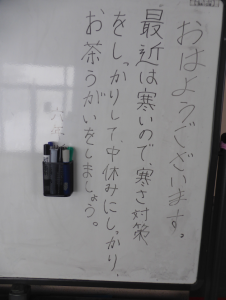 おはようございます。
最近は寒いので、寒さ対策
をしっかりして、中休みにしっかり、
お茶うがいをしましょう。